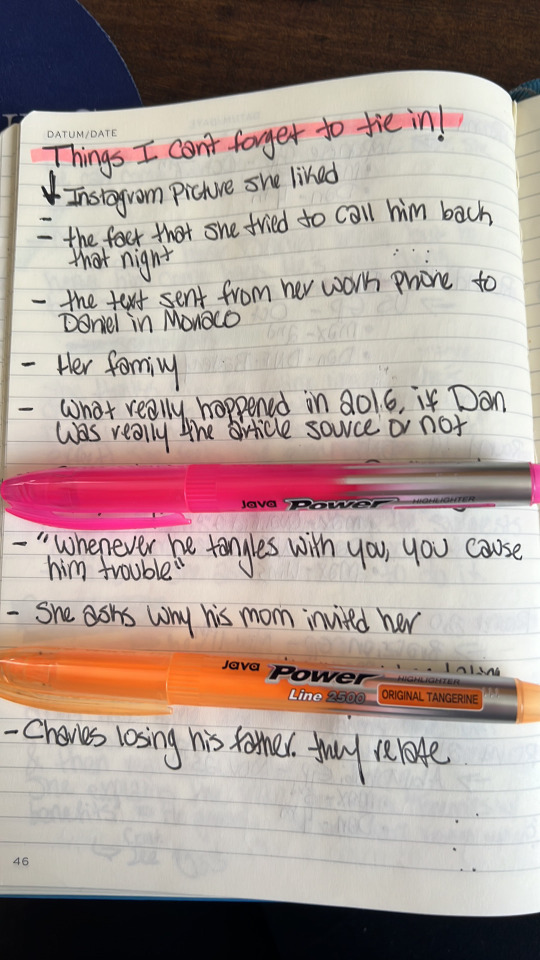 DATUM/DATE
Things I can't forget to tie in!
Instagram picture she liked
- the fact that she tried to call him back
that night
- the text sent from her work phone to
Daniel in Monaco
- Her family
- What really happened in 2016, if Dan
was really the article source or not
Java Power HIGHLIGHTER
- "Whenever he tangles with you, you cause
him trouble"
- She asks why his mom invited her
Java Power HIGHLIGHTER
Line 2500 ORIGINAL TANGERINE
- Charles losing his father. they relate
46